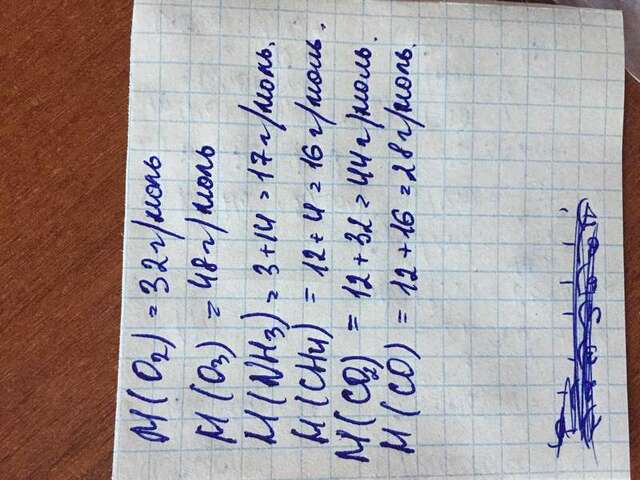 M(O₂) = 32 г/моль
M(O₃) = 48 г/моль
M(NH₃) = 3+14 = 17 г/моль.
M(CH₄) = 12+4 = 16 г/моль.
M(CO₂) = 12+32 = 44 г/моль.
M(CO) = 12+16 = 28 г/моль.